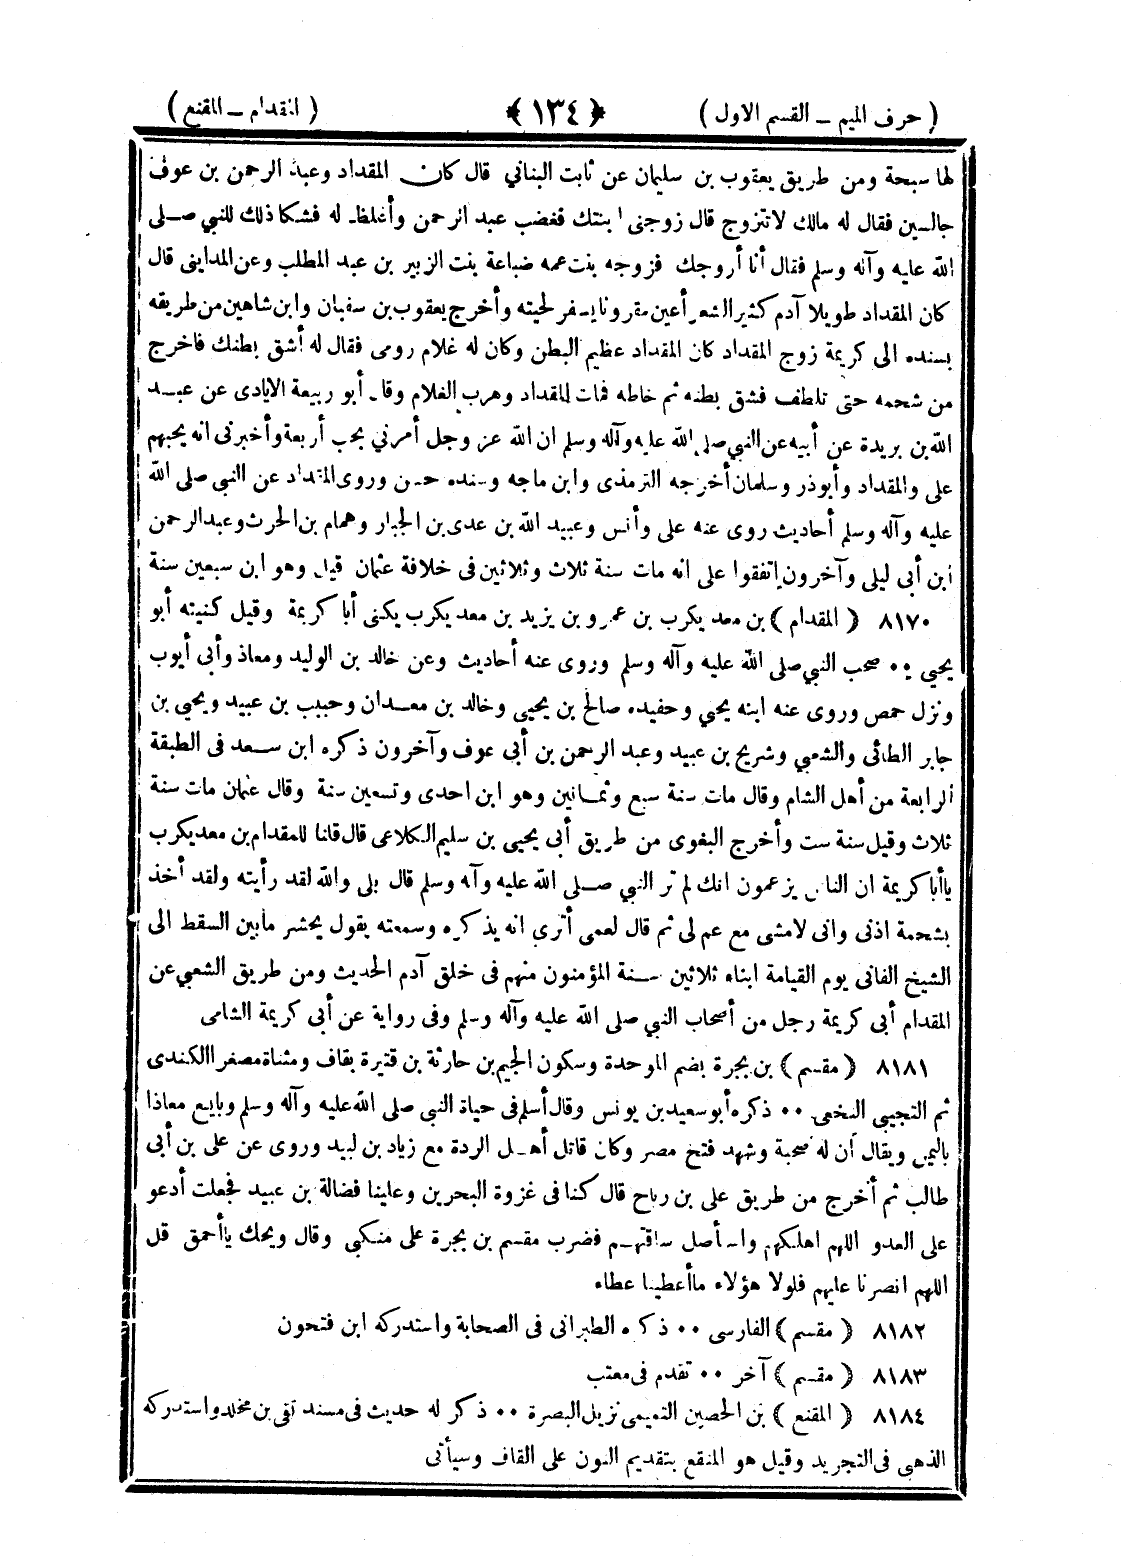 ( حرف الميم – القسم الاول ) ﴿ ١٣٤ ﴾ ( المقدام – المقنع )
لها سبحة ومن طريق يعقوب بن سليمان عن ثابت البناني قال كان المقداد وعبد الرحمن بن عوف
جالسين فقال له مالك لا تتزوج قال زوجنى ابنتك فغضب عبد الرحمن وأغلظ له فشكا ذلك للنبي صلى
الله عليه وآله وسلم فقال أنا أزوجك فزوجه بنت عمه ضباعة بنت الزبير بن عبد المطلب وعن المدايني قال
كان المقداد طويلا آدم كثير الشعر أعين مقرونا يصفر لحيته وأخرج يعقوب بن سفيان وابن شاهين من طريقه
بسنده الى كريمة زوج المقداد كان المقداد عظيم البطن وكان له غلام رومى فقال له أشق بطنك فاخرج
من شحمه حتى تلطف فشق بطنه ثم خاطه فمات المقداد وهرب الغلام وقال أبو ربيعة الايادى عن عبد
الله بن بريدة عن أبيه عن النبي صلى الله عليه وآله وسلم ان الله عز وجل أمرني بحب أربعة وأخبرنى انه يحبهم
على والمقداد وأبوذر وسلمان أخرجه الترمذى وابن ماجه وسنده حسن وروى المقداد عن النبى صلى الله
عليه وآله وسلم أحاديث روى عنه على وأنس وعبيد الله بن عدى بن الخيار وهمام بن الحرث وعبد الرحمن
ابن أبى ليلى وآخرون إتفقوا على انه مات سنة ثلاث وثلاثين فى خلافة عثمان قيل وهو ابن سبعين سنة
٨١٧٠ ( المقدام ) بن معد يكرب بن عمرو بن يزيد بن معد يكرب يكنى أبا كريمة وقيل كنيته أبو
يحيي ٠٠ صحب النبي صلى الله عليه وآله وسلم وروى عنه أحاديث وعن خالد بن الوليد ومعاذ وأبى أيوب
ونزل حمص وروى عنه ابنه يحيي وحفيده صالح بن يحيى وخالد بن معدان وحبيب بن عبيد ويحيي بن
جابر الطائى والشعبي وشريح بن عبيد وعبد الرحمن بن أبى عوف وآخرون ذكره ابن سعد فى الطبقة
الرابعة من أهل الشام وقال مات سنة سبع وثمانين وهو ابن احدى وتسعين سنة وقال عثمان مات سنة
ثلاث وقيل سنة ست وأخرج البغوى من طريق أبى يحيي بن سليم الكلاعى قال قلنا للمقدام بن معد يكرب
ياأبا كريمة ان الناس يزعمون انك لم تر النبي صلى الله عليه وآله وسلم قال بلى والله لقد رأيته ولقد أخذ
بشحمة اذنى وانى لامشى مع عم لى ثم قال لعمى أترى انه يذكره وسمعته يقول يحشر مابين السقط الى
الشيخ الفانى يوم القيامة ابناء ثلاثين سنة المؤمنون منهم فى خلق آدم الحديث ومن طريق الشعبي عن
المقدام أبى كريمة رجل من أصحاب النبي صلى الله عليه وآله وسلم وفى رواية عن أبى كريمة الشامى
٨١٨١ ( مقسم ) بن بجرة بضم الموحدة وسكون الجيم بن حارثة بن قتيرة بقاف ومثناة مصغرا الكندى
ثم التجيبى النخعى ٠٠ ذكره أبو سعيد بن يونس وقال أسلم فى حياة النبى صلى الله عليه وآله وسلم وبايع معاذا
باليمن ويقال أن له صحبة وشهد فتح مصر وكان قاتل أهل الردة مع زياد بن لبيد وروى عن على بن أبى
طالب ثم أخرج من طريق على بن رباح قال كنا فى غزوة البحرين وعلينا فضالة بن عبيد فجعلت أدعو
على العدو اللهم اهلكهم واستأصل ساقتهم فضرب مقسم بن بجرة على منكبى وقال ويحك ياأحمق قل
اللهم انصرنا عليهم فلولا هؤلاء ماأعطينا عطاء
٨١٨٢ ( مقسم ) الفارسى ٠٠ ذكره الطبرانى فى الصحابة واستدركه ابن فتحون
٨١٨٣ ( مقسم ) آخر ٠٠ تقدم فى معتب
٨١٨٤ ( المقنع ) بن الحصين التميمى نزيل البصرة ٠٠ ذكر له حديث فى مسند تقى بن مخلد واستدركه
الذهبى فى التجريد وقيل هو المنقع بتقديم النون على القاف وسيأتى